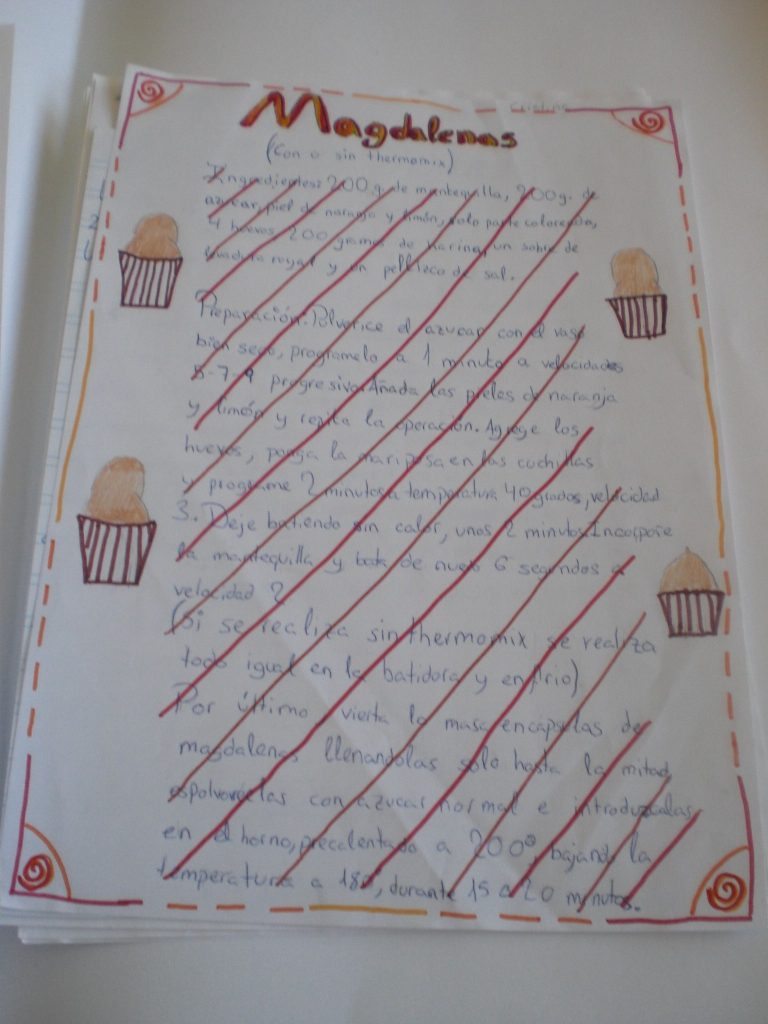 Cristina
Magdalenas
(Con o sin thermomix)
Ingredientes: 200 g. de mantequilla, 200 g. de
azucar, piel de naranja y limón, solo parte coloreada,
4 huevos, 200 gramos de harina, un sobre de
levadura royal y un pellizco de sal.
Preparación: Polverice el azucar con el vaso
bien seco, programelo a 1 minuto a velocidades
5-7-9 progresivo. Añada las pieles de naranja
y limón y repita la operación. Agrege los
huevos, ponga la mariposa en las cuchillas
y programe 2 minutos a temperatura 40 grados, velocidad
3. Deje batiendo sin calor, unos 2 minutos. Incorpore
la mantequilla y bata de nuevo 6 segundos a
velocidad 2
(Si se realiza sin thermomix se realiza
todo igual en la batidora y en frio).
Por último, vierta la masa en cápsulas de
magdalenas llenandolas solo hasta la mitad,
espolvoréelas con azucar normal e introduzcalas
en el horno, precalentado a 200º, bajando la
temperatura a 180º, durante 15 o 20 minutos.